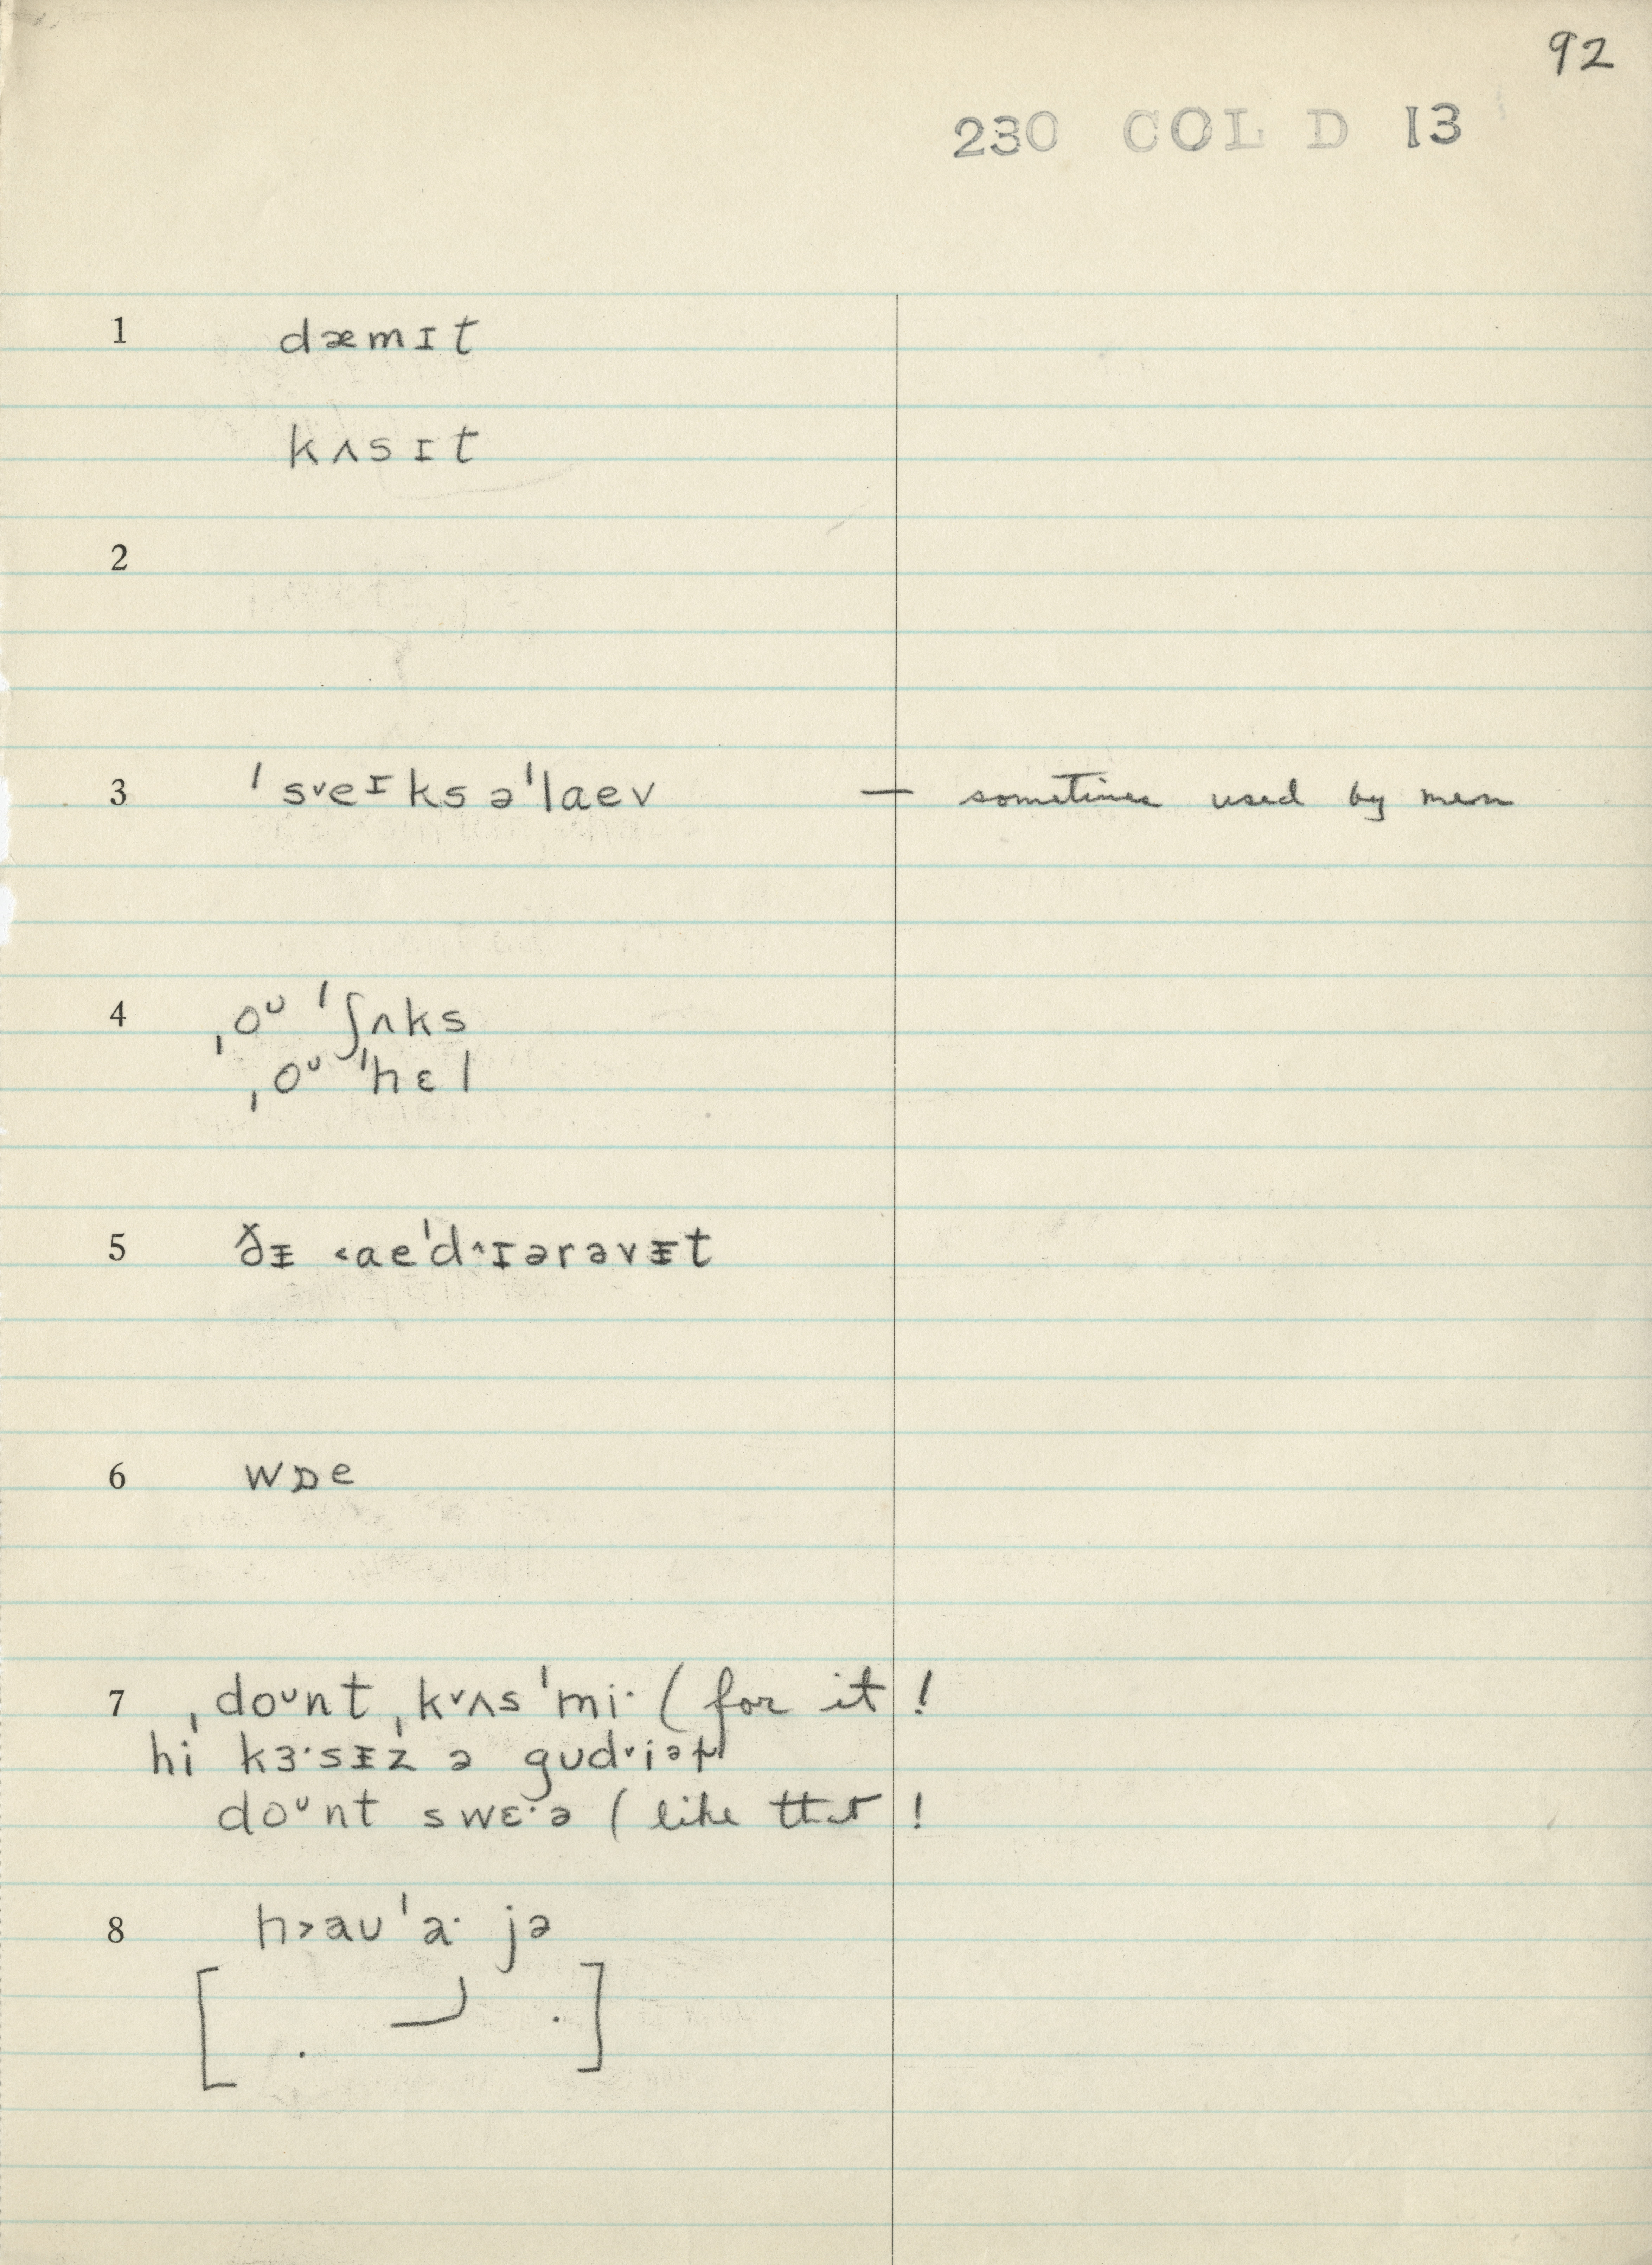 92
230 COL D 13
1 dæmɪt
kʌsɪt
2
3 ˈs˅eᶦksəˈlaev — sometimes used by men
4 ˌoᵁ ˈʃʌks
ˌoᵁ ˈhɛl
5 ðᵻ ˂aeˈd˄ɪərəvᵻt
6 wɒe
7 ˌdoᵁnt ˌk˅ʌsˈmi· (for it!
hi kɜ·sᵻz ə gud˅iə
doᵁnt swɛ·ə (like that!
8 h˃auˈa· jə